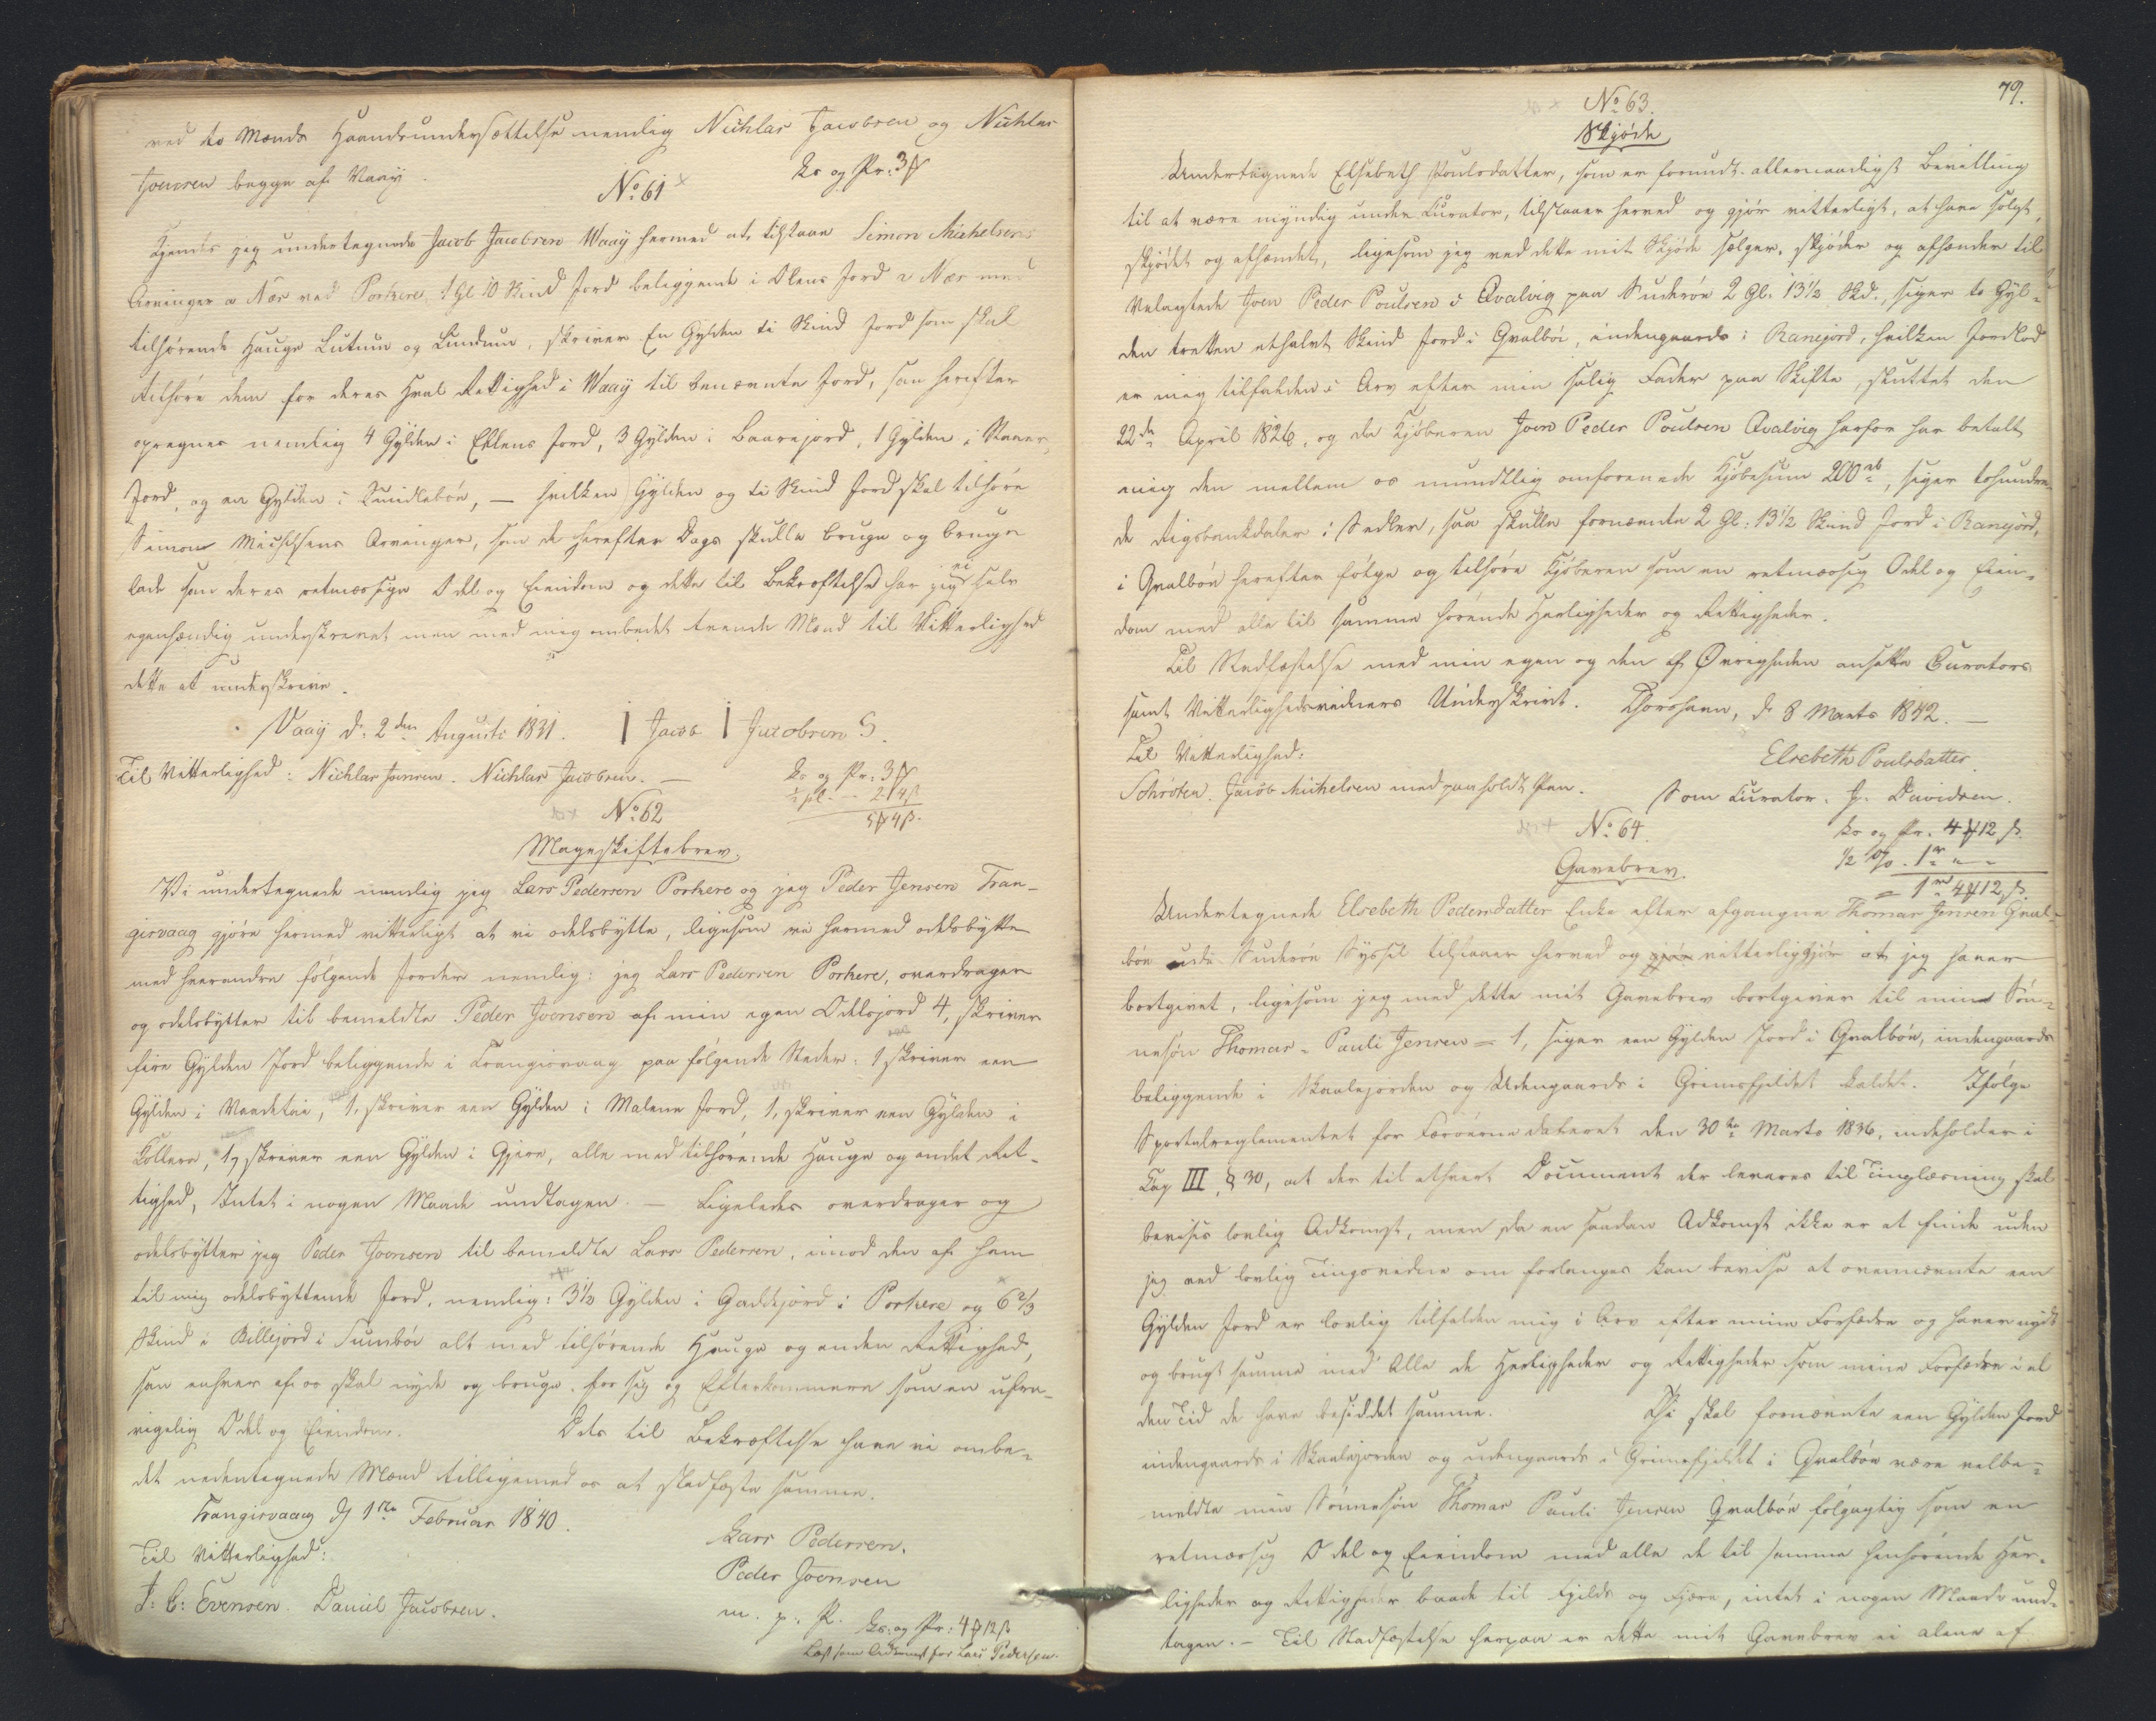 ved to Mænds Haandsundersættelse nemlig Nichlas Jacobsen og Nichlas
Joensen begge af Waay.
Ls og Pr: 3 ₰
No 61
Kjendes jeg undertegnede Jacob Jacobsen Waaÿ hermed at tilstaae Simon Michelsens
Arvinger a Næs ved Porkere, 1 Gl 10 Skind Jord beliggende i Olens Jord a Næs med
tilhørende Hauge Lutum og Lundum, skriver En Gylden ti Skind Jord som skal
tilhøre dem for deres Hval Rettighed i Waaÿ til benævnte Jord, som herefter
opregnes nemlig 4 Gylden i Ellens Jord, 3 Gylden i Baarejord, 1 Gylden i
Jord, og en Gylden i Quidlebøn, — hvilken Gylden og ti Skind Jord skal tilhøre
Simon Michelsens Arvinger, som de herefter Dags skulle bruge og bruge
lade som deres retmæssige Odel og Eiendom og dette til Bekræftelse har jeg ei selv
egenhændig underskrevet men med mig ombedet tvende Mænd til Vitterlighed
dette at underskrive.
Vaaÿ d. 2den Augusti 1831. Jacob Jacobsen S.
Til Vitterlighed: Nichlas Joensen. Nichlas Jacobsen. —
Ls og Pr: 3 ₰
½ pl. — 2 „ 4 ß
5 ₰ 4 ß.
No 62
Mageskiftebrev.
Vi undertegnede nemlig jeg Lars Pedersen Porkere og jeg Peder Jensen Tran-
gisvaag gjøre hermed vitterligt at vi odelsbytte, ligesom vi hermed odelsbytte
med hverandre følgende Jorder nemlig: jeg Lars Pedersen Porkere, overdrager
og odelsbytter til bemeldte Peder Joensen af min egen Odelsjord 4, skriver
fire Gylden Jord beliggende i Trangisvaag paa følgende Steder: 1, skriver een
Gylden i Vaadetni, 1, skriver een Gylden i Malene Jord, 1, skriver een Gylden i
Kollera, 1, skriver een Gylden i Gjera, alle med tilhørende Hauge og andet Ret-
tighed, Intet i nogen Maade undtagen. — Ligeledes overdrager og
odelsbytter jeg Peder Joensen til bemeldte Lars Pedersen, imod den af ham
til mig odelsbyttende Jord, nemlig: 3½ Gylden i Gaddejord i Porkere og 6⅔
Skind i Billejord i Sumbøe alt med tilhørende Hauge og anden Rettighed,
som enhver af os skal nyde og bruge for sig og Efterkommere som en ufra-
vigelig Odel og Eiendom. Dets til Bekræftelse have vi ombe-
det nedentegnede Mænd tilligemed os at stadfæste samme.
Trangisvaag d 1ste Februar 1840.
Til Vitterlighed:
Lars Pedersen.
Peder Joensen
J: C: Evensen. Daniel Jacobsen.
m. p. P.
Ls: og Pr: 4 ₰ 12 ß
Læst som Adkomst for Lars Pedersen.
79.
No 63.
Skjøde
Undertegnede Elsebeth Poulsdatter, som er forundt allernaadigst Bevilling
til at være myndig under Curator, tilstaaer herved og gjør vitterligt, at have solgt,
skjødet og afhændet, ligesom jeg ved dette mit Skjøde sælger, skjøder og afhænder til
Velagtede Joen Peder Poulsen i Qvalvig paa Suderøe 2 Gl. 13½ Skd., siger to Gyl-
den tretten ethalvt Skind Jord i Qvalbøe, indengaards i Ranejord, hvilken Jordlod
er mig tilfalden i Arv efter min salig Fader paa Skifte, sluttet den
22de April 1826, og da Kjøberen Joen Peder Poulsen Qvalvig herfor har betalt
mig den mellem os mundtlig omforenede Kjøbesum 200 rb, siger tohundre-
de Rigsbankdaler i Sedler, saa skulle fornævnte 2 Gl: 13½ Skind Jord i Ranejord,
i Qvalbøe herefter følge og tilhøre Kjøberen som en retmæssig Odel og Eien-
dom med alle til samme hørende Herligheder og Rettigheder.
Til Stadfæstelse med min egen og den af Øvrigheden ansatte Curators
samt Vitterlighedsvidners Underskrivt. Thorshavn, d. 8 Marts 1842. —
Til Vitterlighed:
Elsebeth Poulsdatter.
Schrøter. Jacob Michelsen med paaholdt Pen.
Som Curator. J. Davidsen.
No 64.
Ls og Pr. 4 ₰ 12 ß.
½ % . 1 r „ „
= 1 rd 4 ₰ 12 ß
Gavebrev.
Undertegnede Elsebeth Pedersdatter Enke efter afgangne Thomas Jensen Qval-
bøe udi Suderøe Syssel tilstaaer herved og gjør vitterliggjør at jeg haver
bortgivet, ligesom jeg med dette mit Gavebrev bortgiver til mind Søn-
nesøn Thomas Pauli Jensen = 1, siger een Gylden Jord i Qvalbøe, indengaards
beliggende i Skaalejorden og Udengaards i Grimsfjeldet kaldet. Ifølge
Sportelreglementet for Færøerne dateret den 30te Marts 1836, indeholder i
Cap III, § 30, at der til ethvert Document der leveres til Tinglæsning skal
bevises lovlig Adkomst, men da en saadan Adkomst ikke er at finde uden
jeg ved lovlig Tingsvidne om forlanges kan bevise at ovennævnte een
Gylden Jord er lovlig tilfalden mig i Arv efter mine Forfædre og haver nydt
og brugt samme med Alle de Herligheder og Rettigheder som mine Forfædre i al
den Tid de have besiddet samme. Thi skal fornævnte een Gylden Jord
indengaards i Skaalejorden og udengaards i Grimsfjeldet i Qvalbøe være velbe-
meldte min Sønnesøn Thomas Pauli Jensen Qvalbøe følgagtig som en
retmæssig Odel og Eiendom med alle de til samme henhørende Her-
ligheder og Rettigheder baade til Fjelds og Fjære, intet i nogen Maade und-
tagen. — Til Stadfæstelse herpaa er dette mit Gavebrev ei alene af